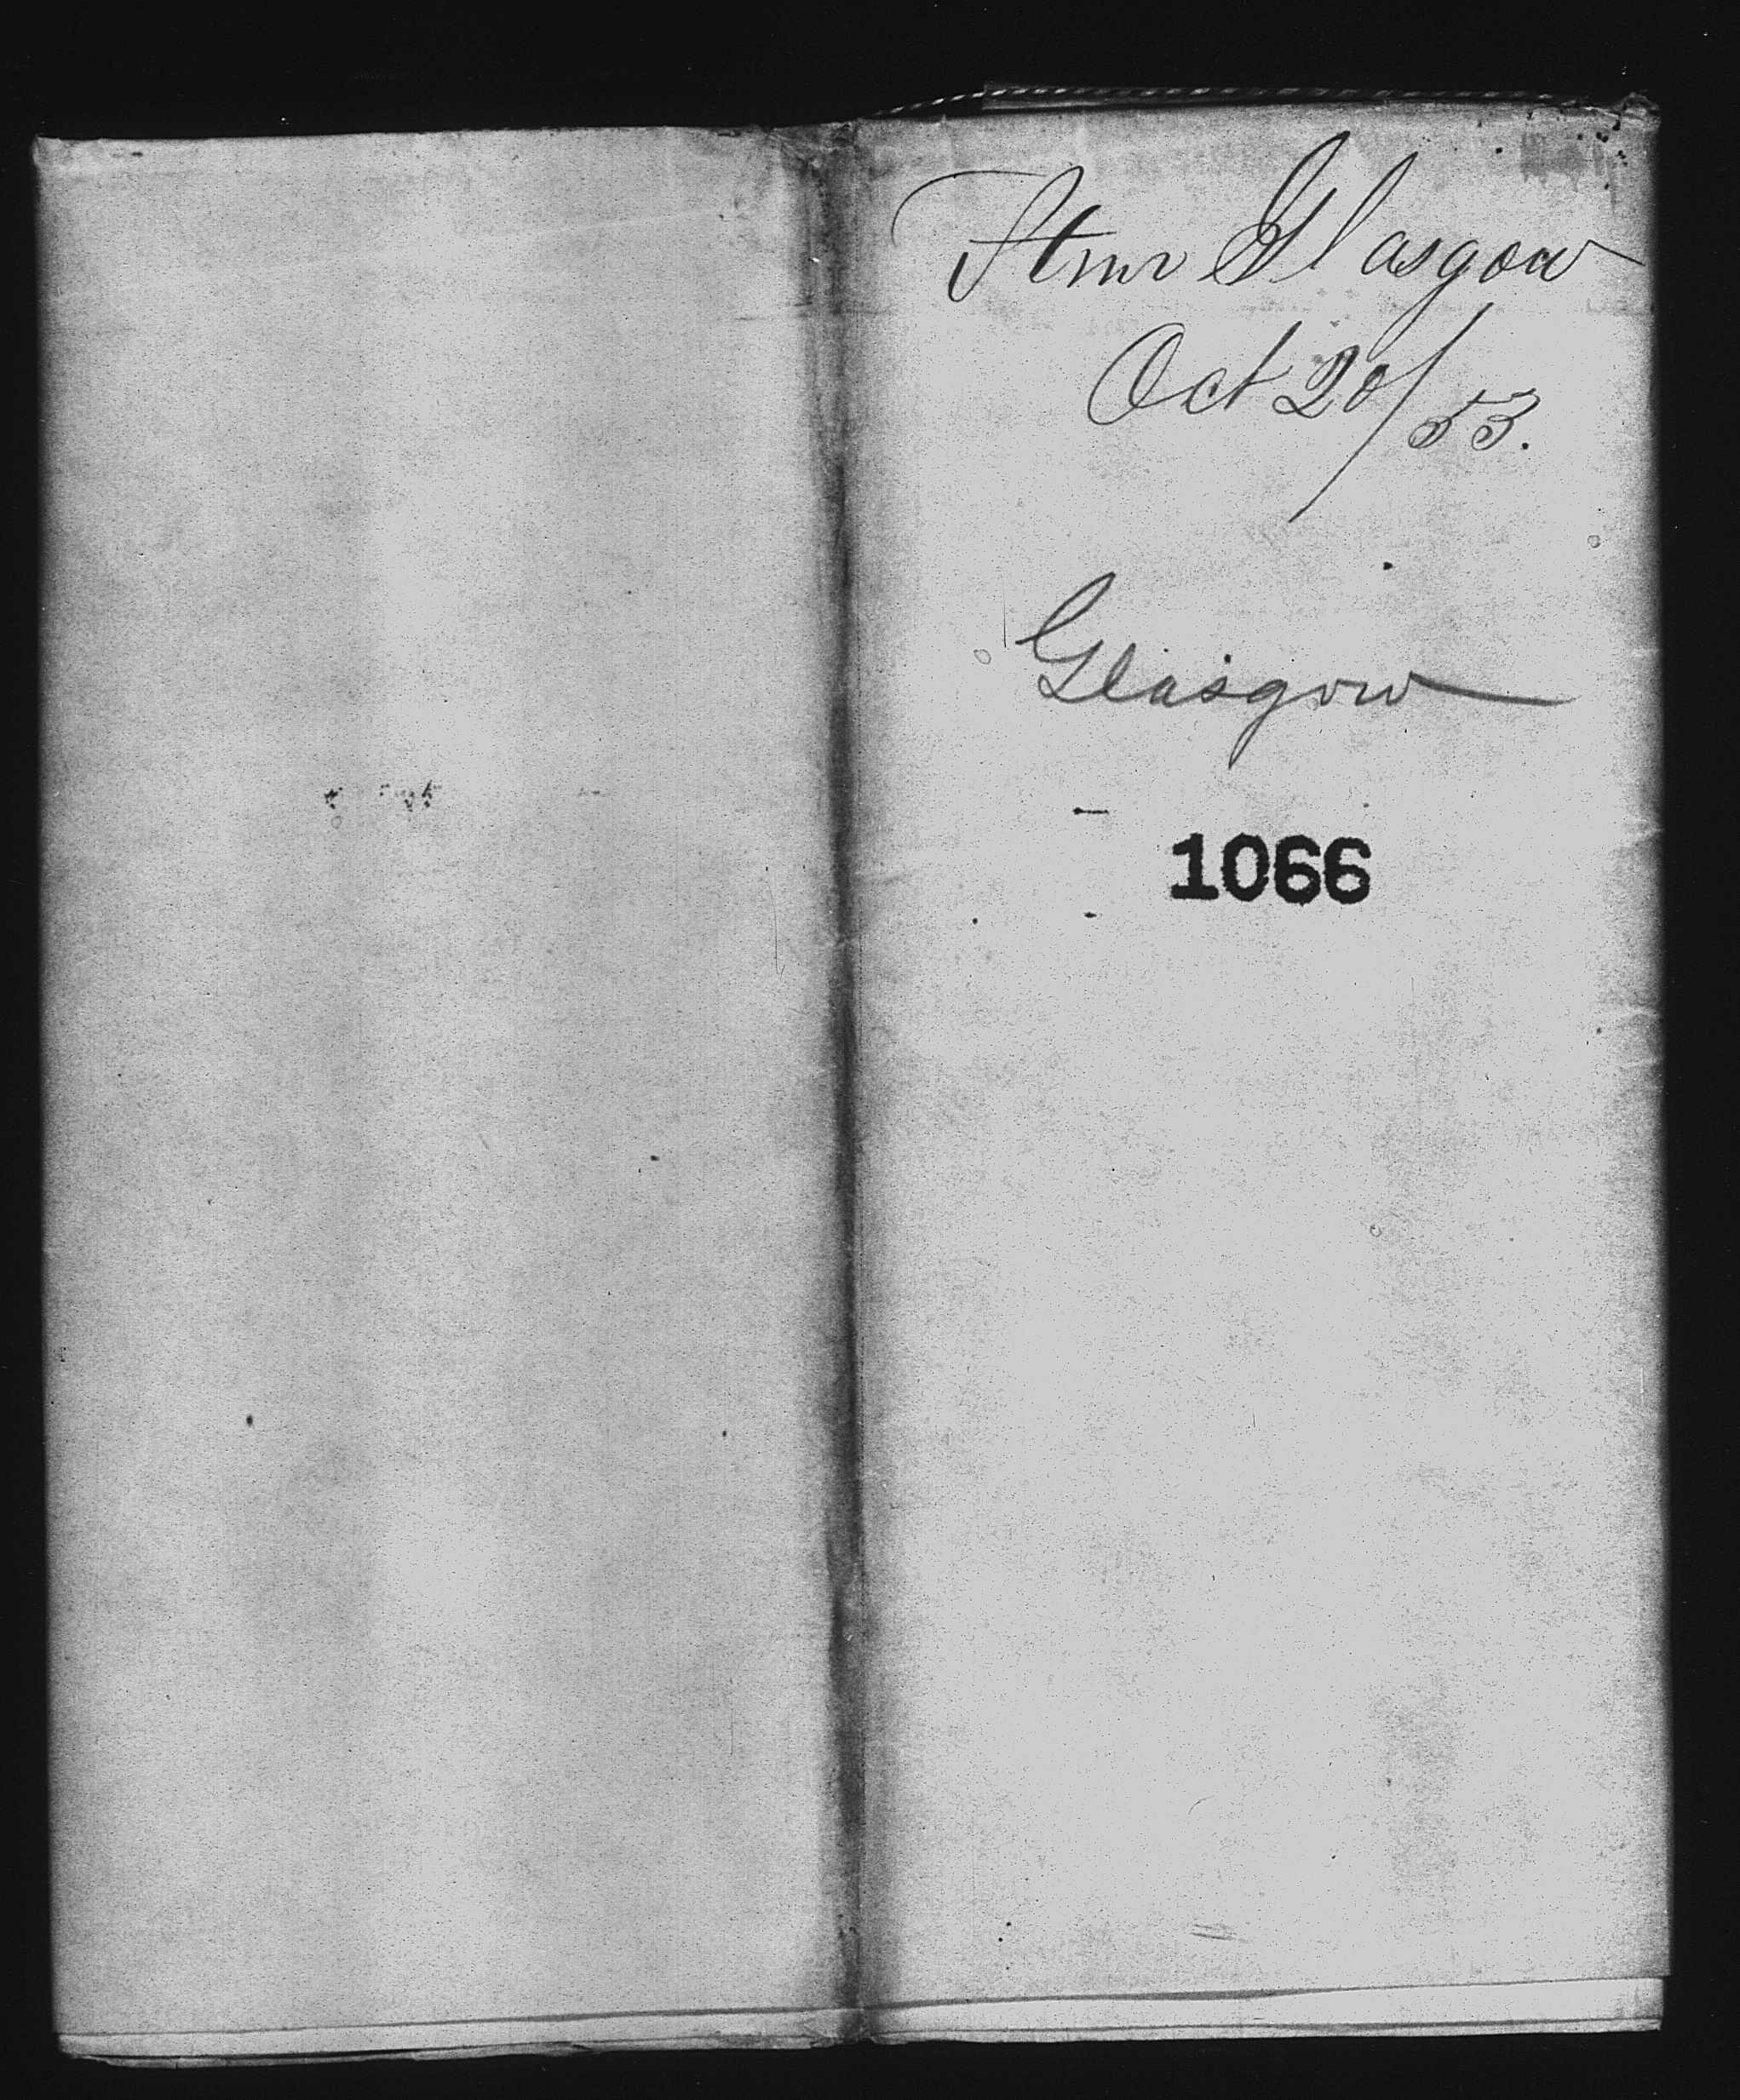 Stmr Glasgow
Oct 20/53.
Glasgow
1066